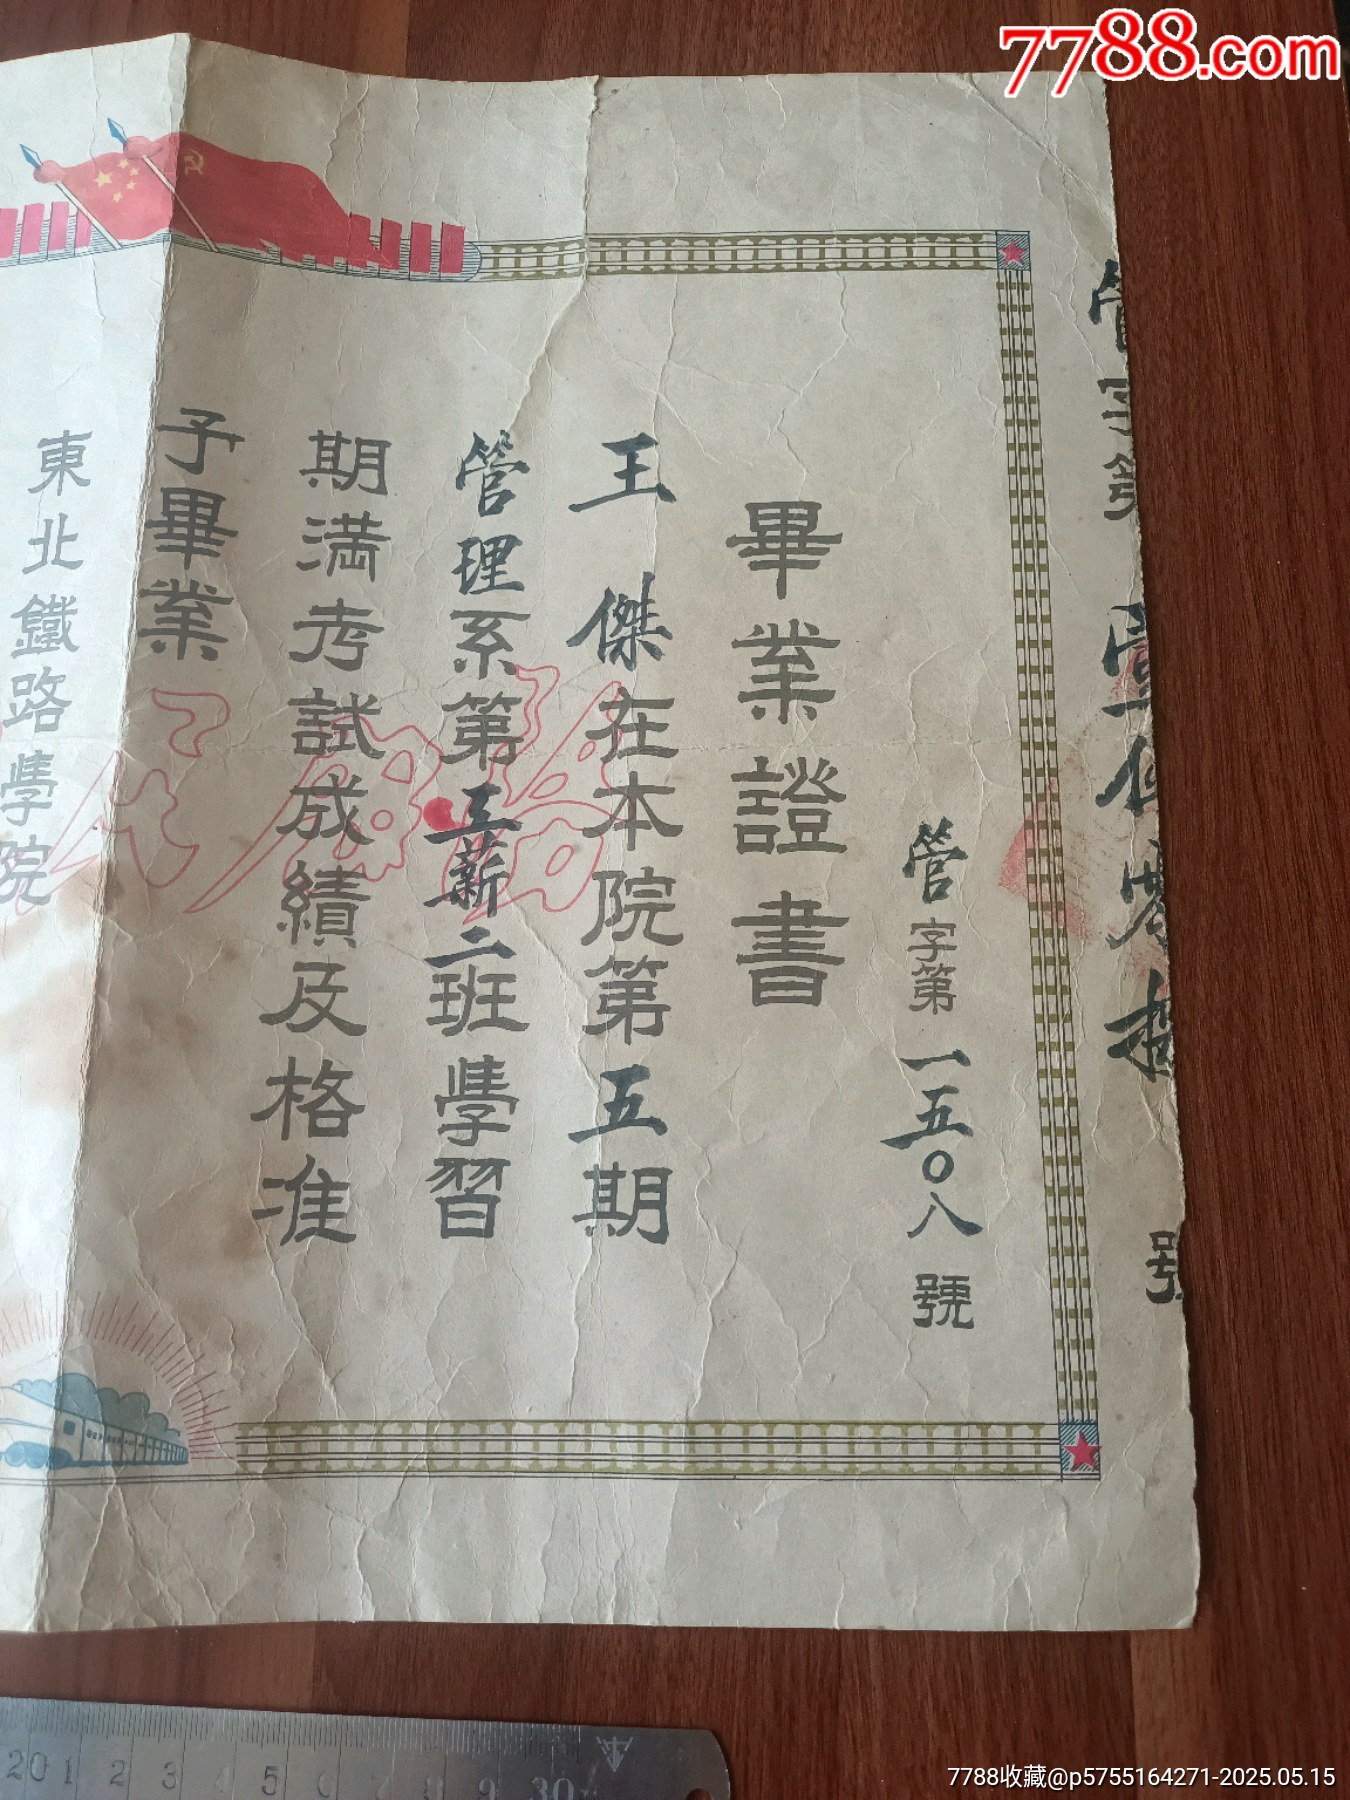 7788.com
管字第壹仟零
管字第一五〇八號
畢業證書
王傑在本院第五期
管理系第工薪二班學習
期满考試成績及格准
予畢業
東北鐵路學院
201 2 3 5 8 9 30
7788收藏@p5755164271-2025.05.15